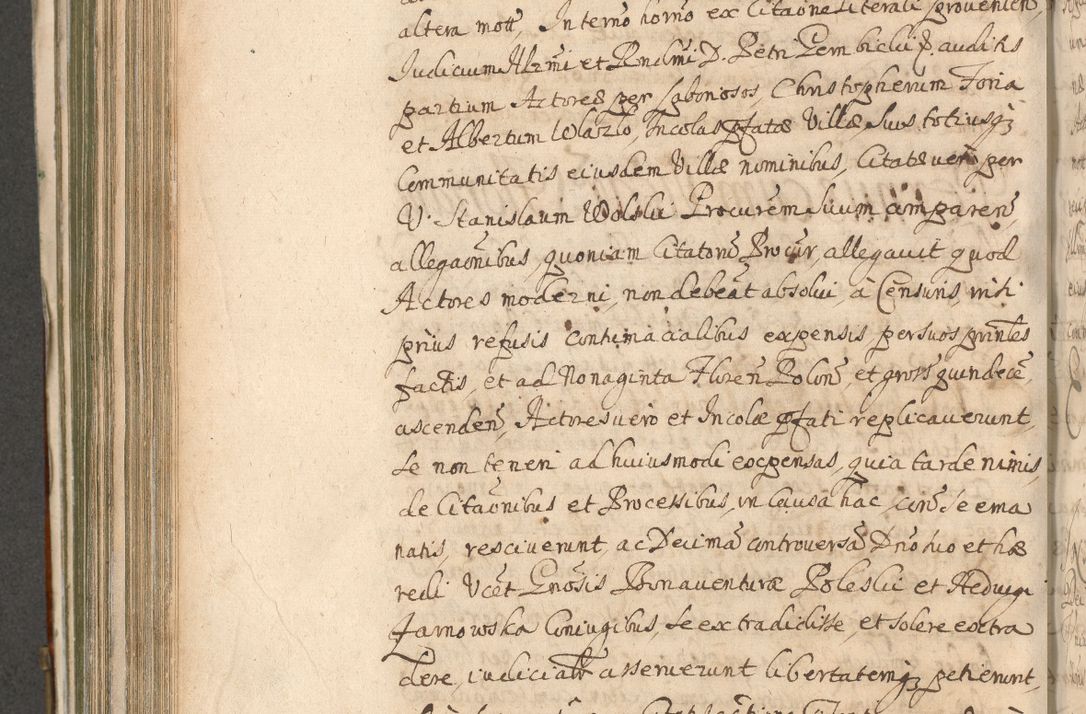 altera mott, In termo horno ex Citaōne Literali provenien,
Judicium Illrmi et Rndmi D. Petri Gembicki E. auditis
partium Actores per laboriosos, Christopherum Foria
et Albertum Wlazlo, Incolas pfatæ Villæ suis totiusq;
Communitatis eiusdem Villæ nominibus, Citatæ vero per
V. Stanislaum Wolski Procurem Suum comparen,
allegaōnibus, quoniam Citatorū Procur, allegavit quod
Actores moderni, non debeāt absolvi, à Censuris, nisi
prius refusis contumacialibus expensis per suos prinles
factis, et ad Nonaginta Floren Polon, et gross quindecē,
ascenden, Actores vero et Incolæ pfati replicaverunt,
se non teneri ad huiusmodi expensas, quia tarde nimis,
de Citaōnibus et Processibus, in Causa hac, con se ema
natis, resciverunt, ac Decimā controversā Dno suo et hæ
redi Vcēt Gnosis Bonaventuræ Poleslii et Hedvigi
Jarnowska Coniugibus, se extradidisse, et solere extra
dere, iudicialr asseruerunt libertatemq; petierunt,